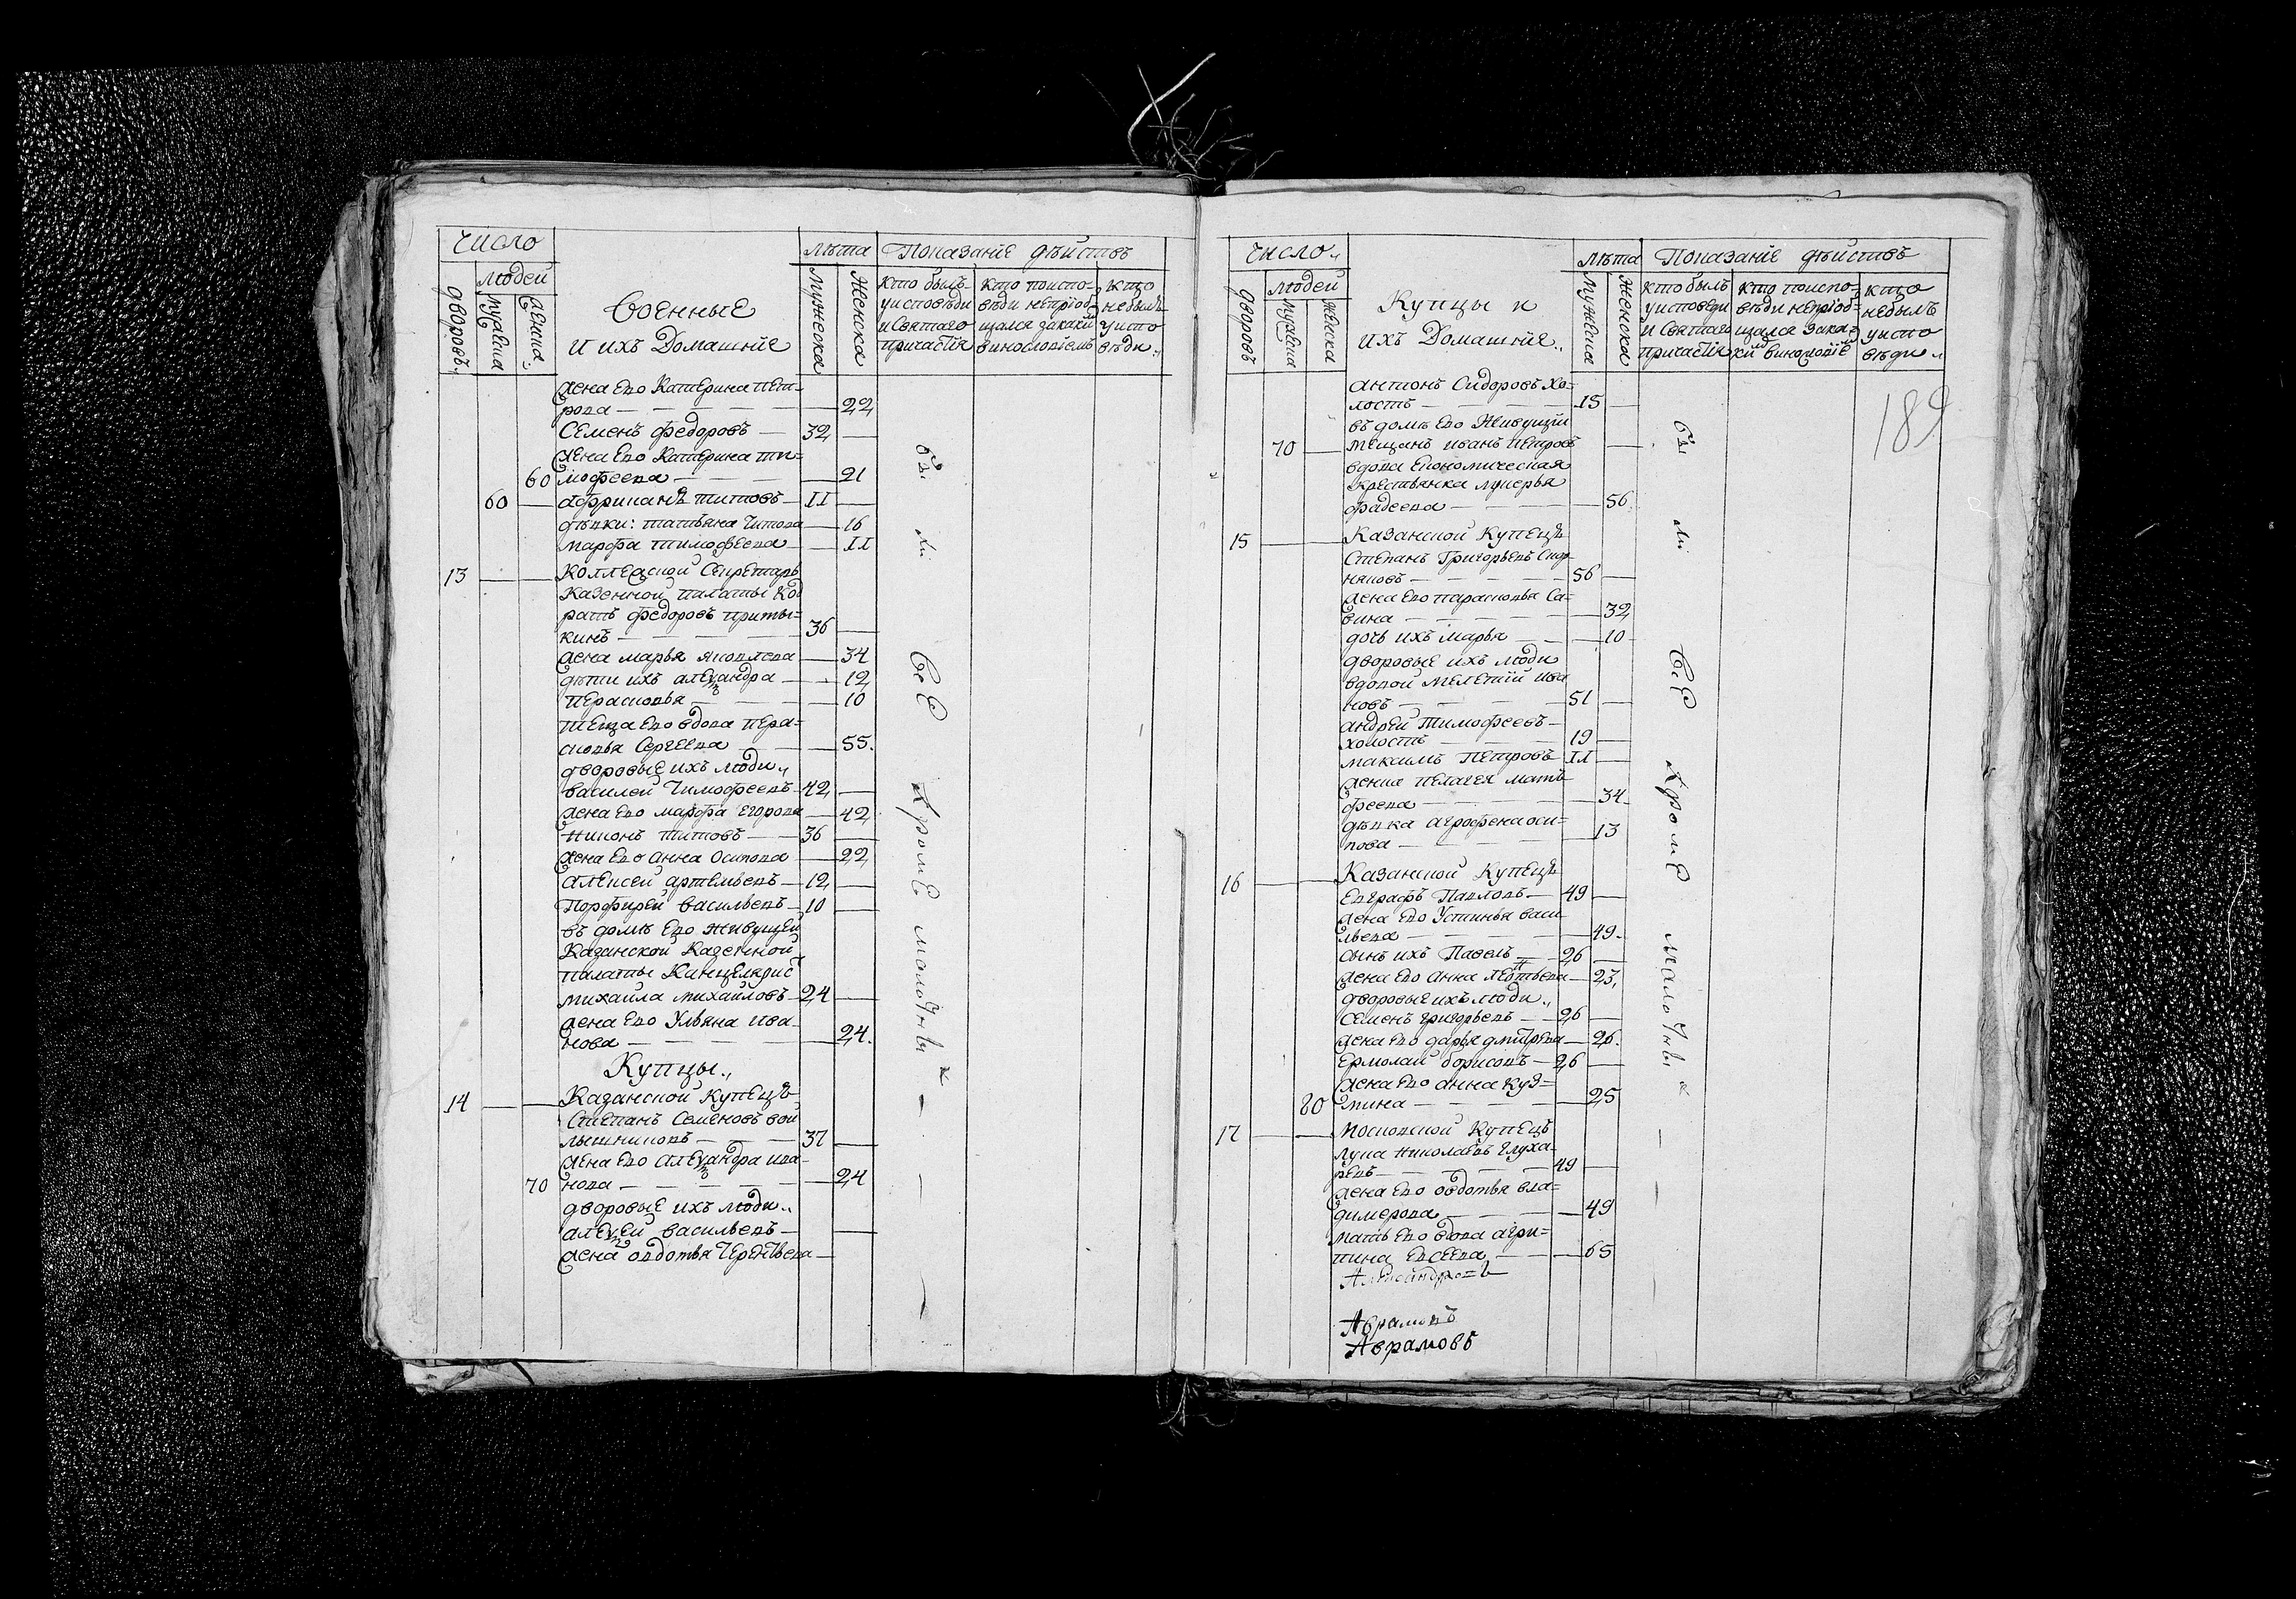 число
людей
дворовъ
мужеска
женска
Военныe
и ихъ Домашнiе
лѣта
Мужеска
Женска
Показанiе дѣйствъ
кто былъ
у исповѣди
и Святаго
причастiя
кто по испо-
вѣди не прiоб-
щался за каки
винословiемъ
кто
не былъ
у испо
вѣди
жена ево Катерина пет-
рова — 22
Семенъ Федоровъ — 32
жена ево Катерина ти-
60 мофеева — 21
60 Африканъ титовъ — 11
дѣвки: татьяна Титова — 16
марфа тимофеева — 11
13 Коллежской Секретарь
Казенной палаты Код
ратъ Федоровъ приты-
кинъ — 36
жена марья яковлева — 34
дѣти ихъ александра — 12
перасковья — 10
теща ево вдова пера-
сковья Сергеева — 55.
дворовые ихъ люди
василей Тимофеевъ — 42
жена ево марфа егорова — 42
Никонъ титовъ — 36
жена ево Анна Осипова — 22
алексей артемьевъ — 12
Порфирей васильевъ — 10
въ домѣ ево живущей
Казанской Казенной
палаты Канцелярис
михаила михайловъ — 24
жена ево Ульяна ива-
нова — 24.
Купцы
14 Казанской Купецъ
Степанъ Семеновъ вой
лышниковъ — 37
жена ево Александра ива-
70 нова — 24
дворовые ихъ люди
алексей васильевъ —
жена овдотья Терентьева —
бы ли все кроме малолѣтныхъ
число
людей
дворовъ
мужеска
женска
Купцы и
ихъ Домашнiе
лѣта
Мужеска
Женска
Показанiе дѣйствъ
кто былъ
у исповеди
и Святаго
причастiя
кто по испо-
вѣди не прiоб-
щался за ка-
ки винословiе
кто
не былъ
у испо
вѣди
189
антонъ Сидоровъ хо-
лостъ — 15
въ домѣ ево Живущiй
70 мещанъ иванъ петровъ —
вдова Економическая
крестьянка лукерья
фадеева — 56.
15 Казанской Купецъ
Степанъ Григорьевъ
няковъ — 56
жена ево парасковья Са-
вина — 32
дочь ихъ марья — 10
дворовые ихъ люди
вдовой мелетiй ива
новъ — 51
андрей Тимофеевъ —
холостъ — 19
максимъ Петровъ — 11
женка пелагея мат-
феева — 34
дѣвка агрофена оси-
пова — 13
16 Казанской Купецъ
Евграфъ Павловъ — 49
жена ево Устинья васи-
льева — 49.
сынъ ихъ Павелъ — 26
жена ево Анна леонтьева — 23,
дворовые ихъ люди
Семенъ григорьевъ — 26
жена ево дарья дмитрева — 26.
Ермолай борисовъ — 26
жена ево анна куз-
80 мина — 25
17 московской Купецъ
лука николаевъ глуха-
ревъ — 49
жена ево овдотья вла-
димерова — 49
мать ево вдова агри-
пина Евсеева — 65
Александровъ
Аврамовъ
Аврамовъ
бы ли все кроме малолѣтныхъ